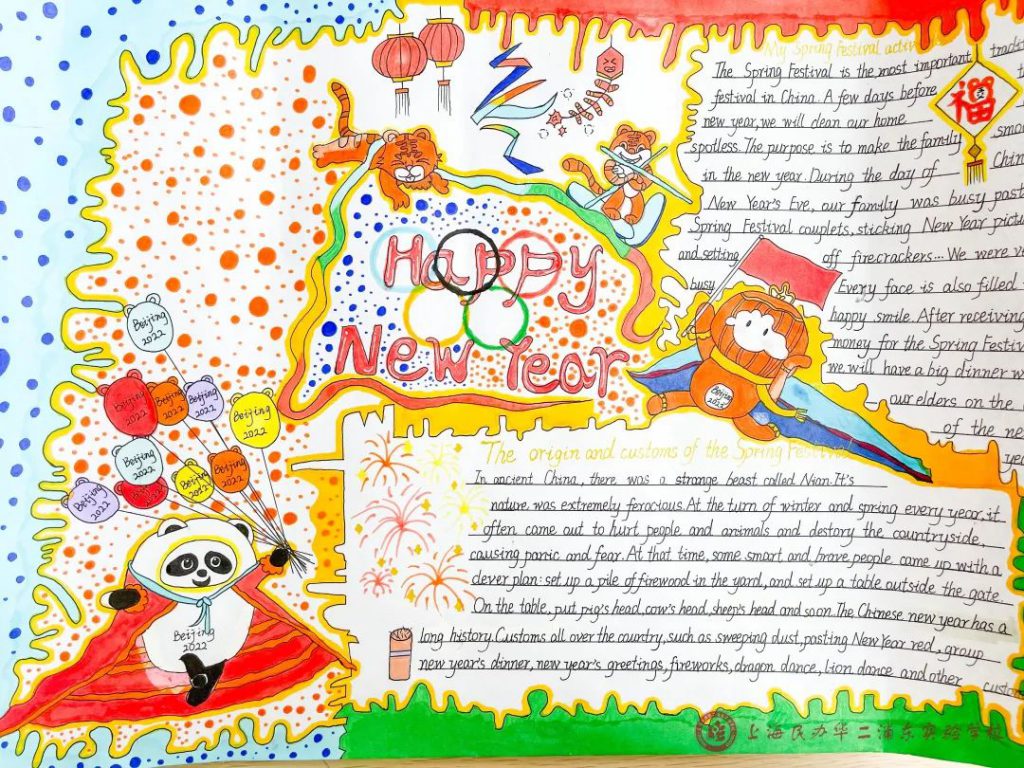 Happy
New Year
My Spring Festival activ
The Spring Festival is the most important tradi
festival in China. A few days before
new year, we will clean our home
spotless. The purpose is to make the family
in the new year. During the day of
New Year's Eve, our family was busy past
Spring Festival couplets, sticking New Year pictu
and setting off firecrackers... We were ve
busy Every face is also filled
happy smile. After receiving
money for the Spring Festiv
we will have a big dinner w
our elders on the
of the ne
福
smo
Chin
Beijing
2022
Beijing
2022
Beijing
2022
Beijing
2022
Beijing
2022
Beijing
2022
Beijing
2022
Beijing
2022
Beijing
2022
Beijing
2022
Beijing
The origin and customs of the Spring Festival
In ancient China, there was a strange beast called Nian. It's
nature was extremely ferocious. At the turn of winter and spring every year, it
often came out to hurt people and animals and destory the countryside,
causing panic and fear. At that time, some smart and brave people came up with a
clever plan: set up a pile of firewood in the yard, and set up a table outside the gate.
On the table, put pig's head, cow's head, sheep's head and soon. The Chinese new year has a
long history. Customs all over the country, such as sweeping dust, pasting New Year red, group
new year's dinner, new year's greetings, fireworks, dragon dance, lion dance and other custom
上海民办华二浦东实验学校